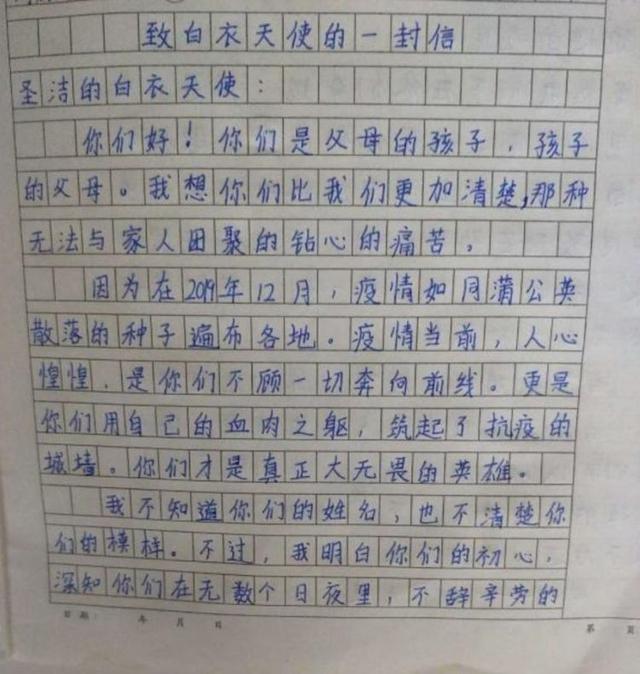 致白衣天使的一封信
圣洁的白衣天使：
你们好！你们是父母的孩子，孩子
的父母。我想你们比我们更加清楚，那种
无法与家人团聚的钻心的痛苦。
因为在2019年12月，疫情如同蒲公英
散落的种子遍布各地。疫情当前，人心
惶惶，是你们不顾一切奔向前线。更是
你们用自己的血肉之躯，筑起了抗疫的
城墙。你们才是真正大无畏的英雄。
我不知道你们的姓名，也不清楚你
们的模样。不过，我明白你们的初心，
深知你们在无数个日夜里，不辞辛劳的
日期： 年 月 日 第 页